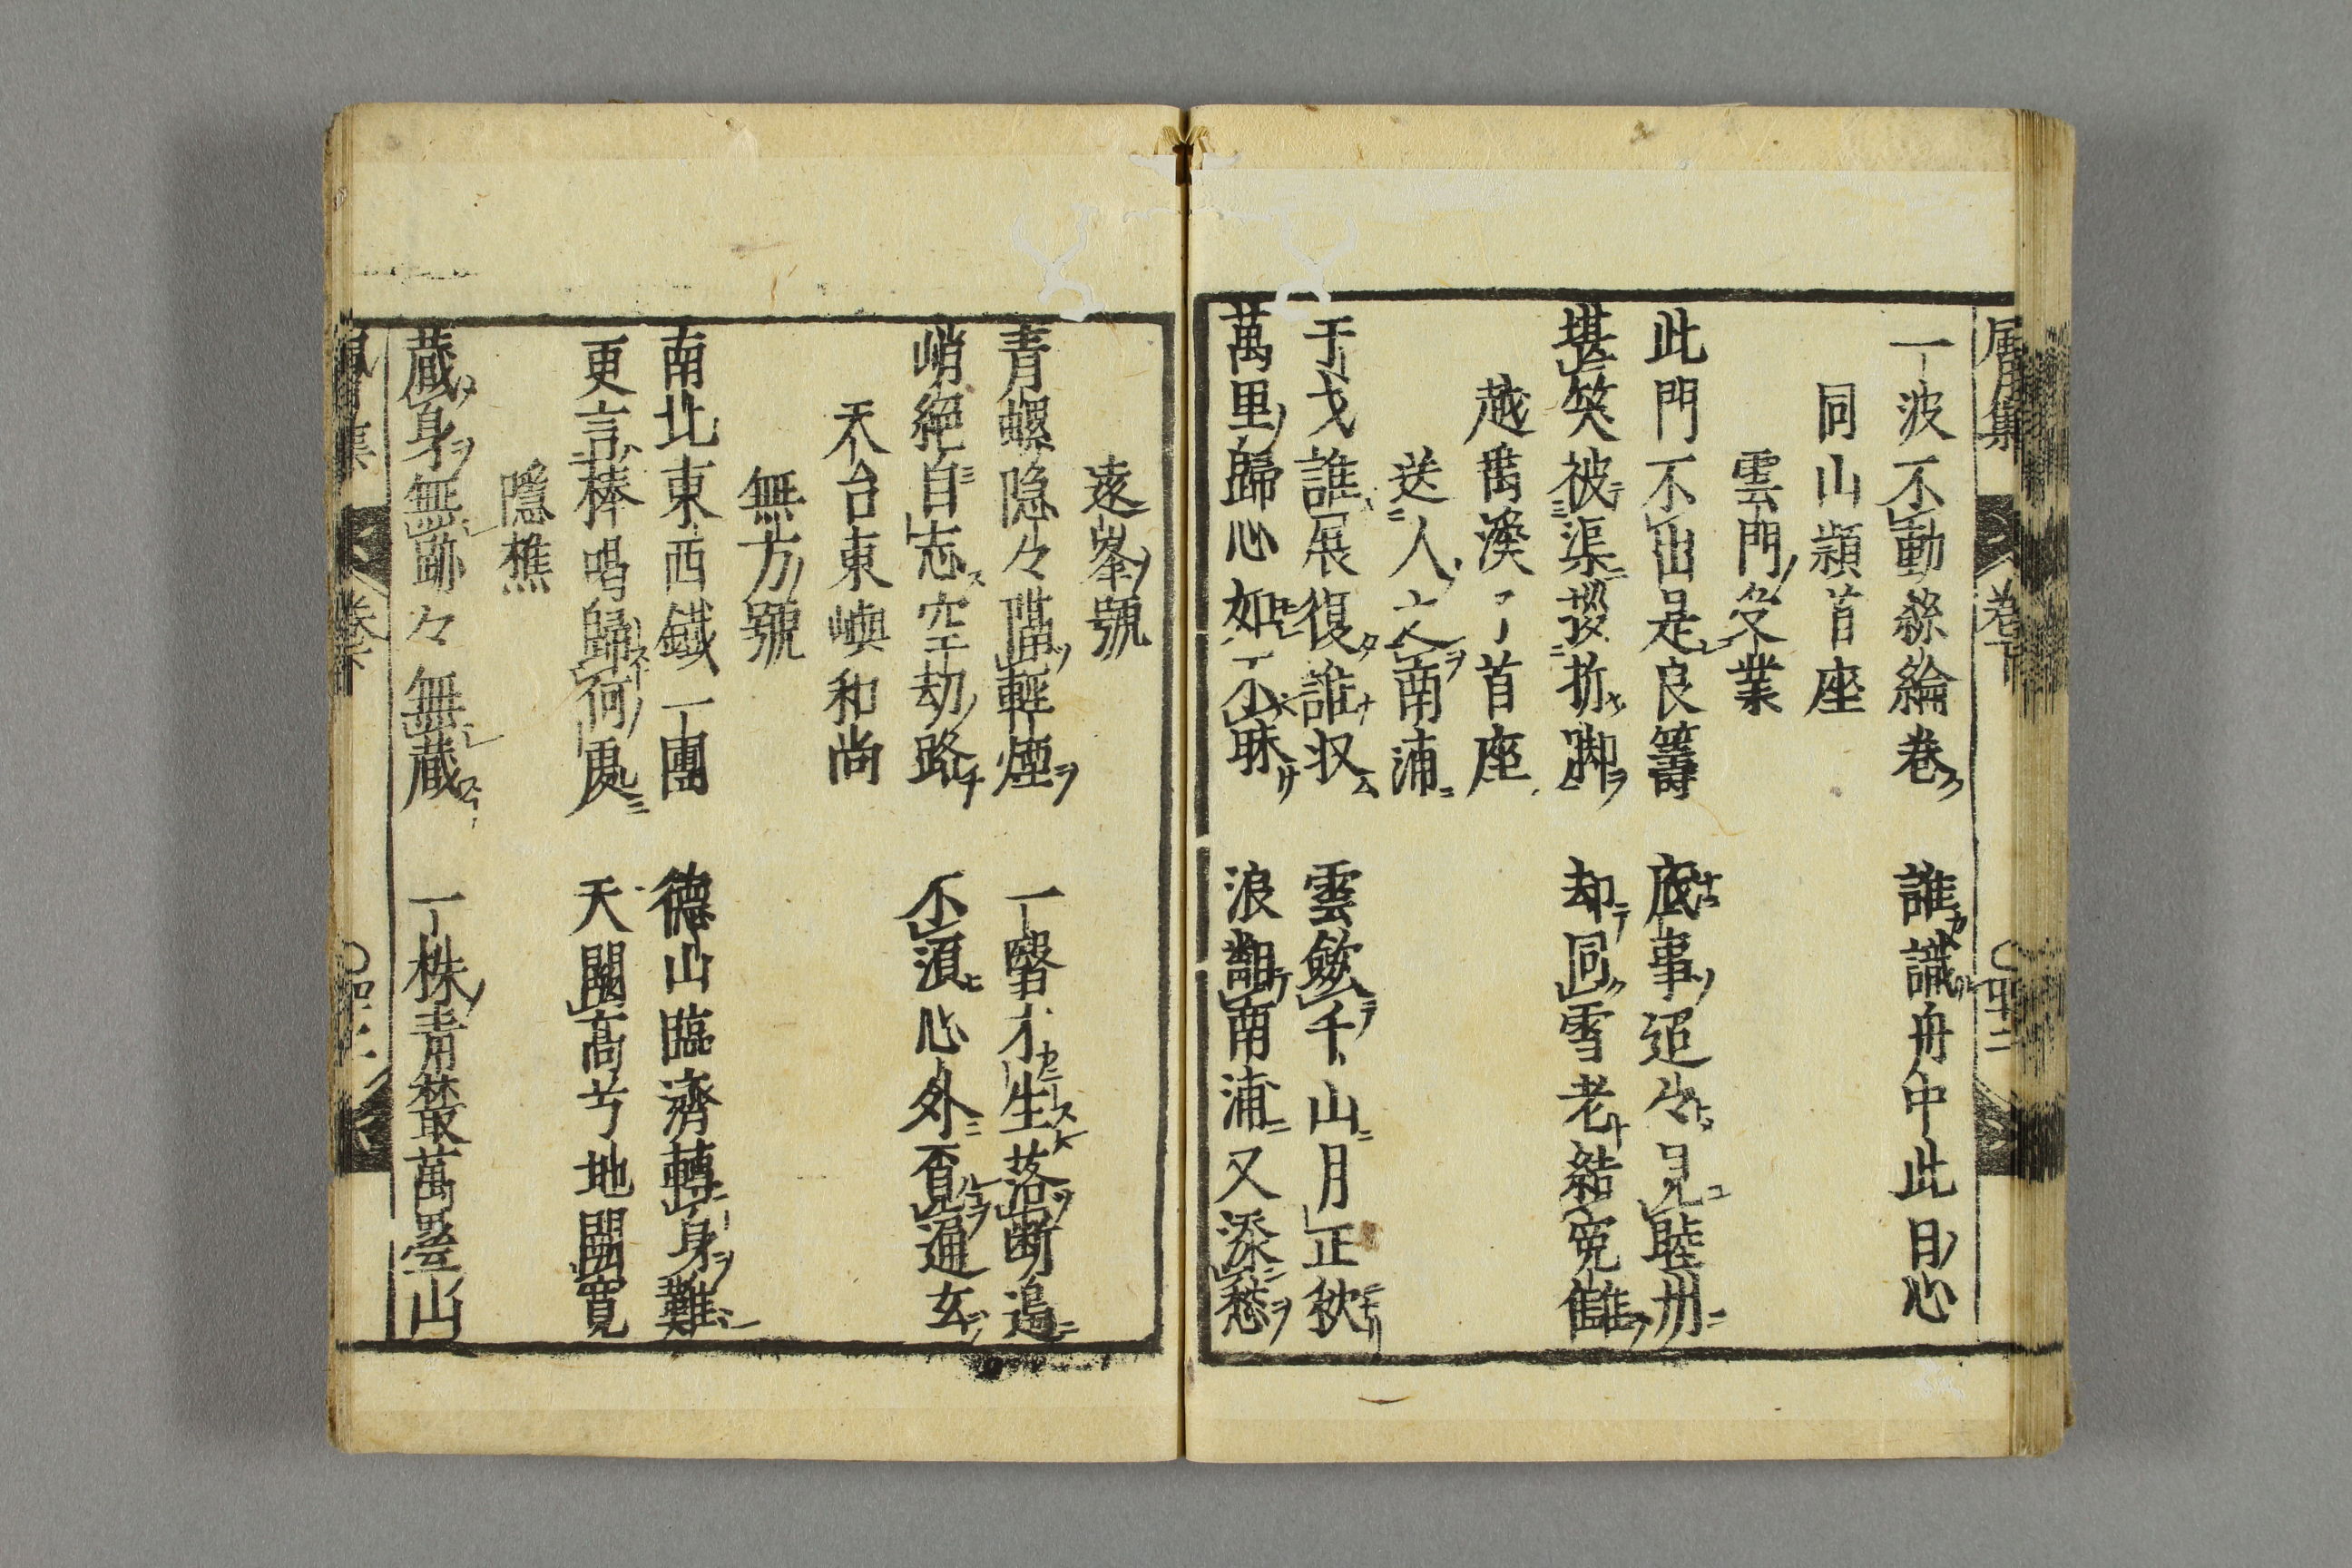 一波不動絲綸巻　誰識舟中此日心
同山頴首座
雲門受業
此門不出是良籌　底事迢々見睦州
堪笑被渠拶折脚　却同雪老結寃讎
越禺溪了首座
送人之南浦
干戈誰展復誰収　雲斂千山月正秋
萬里歸心如不昧　浪翻南浦又添愁
遠峯號
青螺隠々攂輕煙　一翳才生落断邉
峭絶自忘空劫路　不湏心外覔通玄
天台東嶼和尚
無方號
南北東西鐵一團　德山臨濟轉身難
更言棒喝歸何處　天闊高兮地闊寬
隱樵
蔵身無跡々無蔵　一株青藂萬疊山